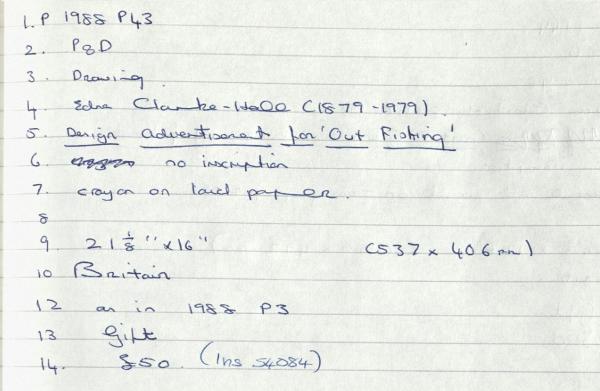 1. P 1988 P43
2. P&D
3. Drawing.
4. Edna Clarke-Hall (1879-1979).
5. Design advertisement for 'Out Fishing'
6. no inscription
7. crayon on laid paper.
8
9. 21 1/8" x 16" (537 x 406 mm)
10 Britain
12 as in 1988 P3
13 Gift
14. £50. (Ins 54084)